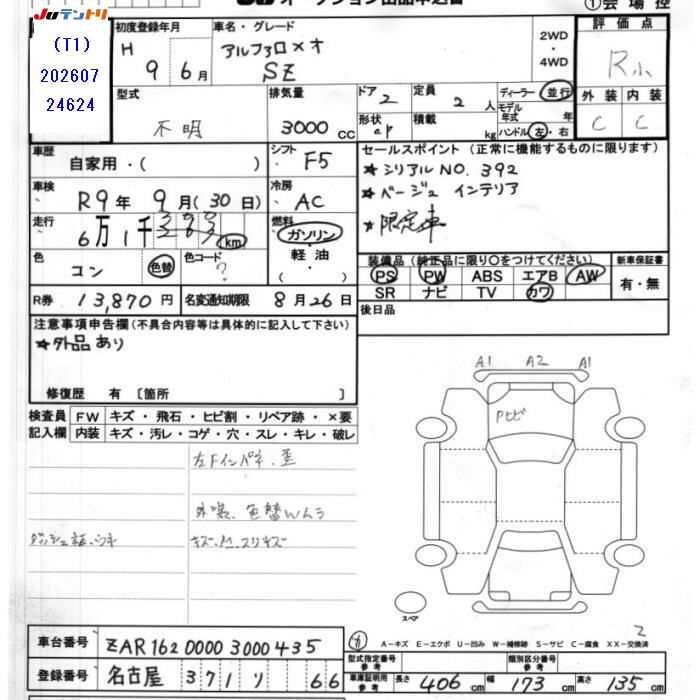 JUテントリ
オークション出品申込書
(T1)
202607
24624
初度登録年月
H 9年 6月
車名・グレード
アルファロメオ
SZ
2WD
・
4WD
評価点
R小
型式
不明
排気量
3000 cc
ドア 2
定員 2人
形状 cp
積載 kg
ディーラー・並行
モデル年式 年
ハンドル 左・右
外装 C
内装 C
車歴
自家用・( )
シフト F5
セールスポイント(正常に機能するものに限ります)
★シリアルNO. 392
★ベージュ インテリア
★限定車
車検
R9年 9月(30日)
冷房 AC
走行
6万1千 km
燃料
ガソリン
軽油
( )
色
コン
色替
色コード ?
装備品(純正品に限り○をつけてください)
PS PW ABS エアB AW
SR ナビ TV カワ
新車保証書
有・無
R券 13,870円
名変通知期限 8月26日
後日品
注意事項申告欄(不具合内容等は具体的に記入して下さい)
★外品あり
修復歴 有〔箇所 〕
検査員
記入欄
FW キズ・飛石・ヒビ割・リペア跡・×要
内装 キズ・汚レ・コゲ・穴・スレ・キレ・破レ
A1 A2 A1
Pヒビ
左Fインパネ.歪
外装、色替Wムラ
スペア
車台番号 ZAR1620000 3000435
登録番号 名古屋 371 ソ 66
A-キズ E-エクボ U-凹み W-補修跡 S-サビ C-腐食 XX-交換済
2
型式指定番号
参考
類別区分番号
参考
車庫証明用
参考
長さ 406 cm
幅 173 cm
高さ 135 cm